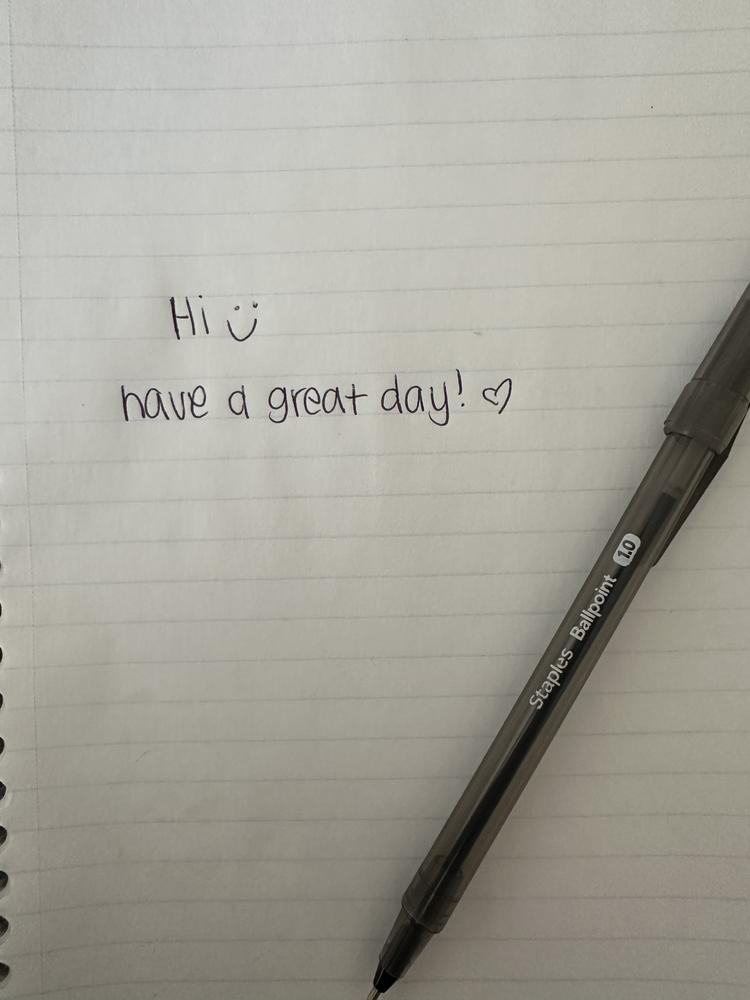 Hi
have a great day!
Staples Ballpoint 1.0